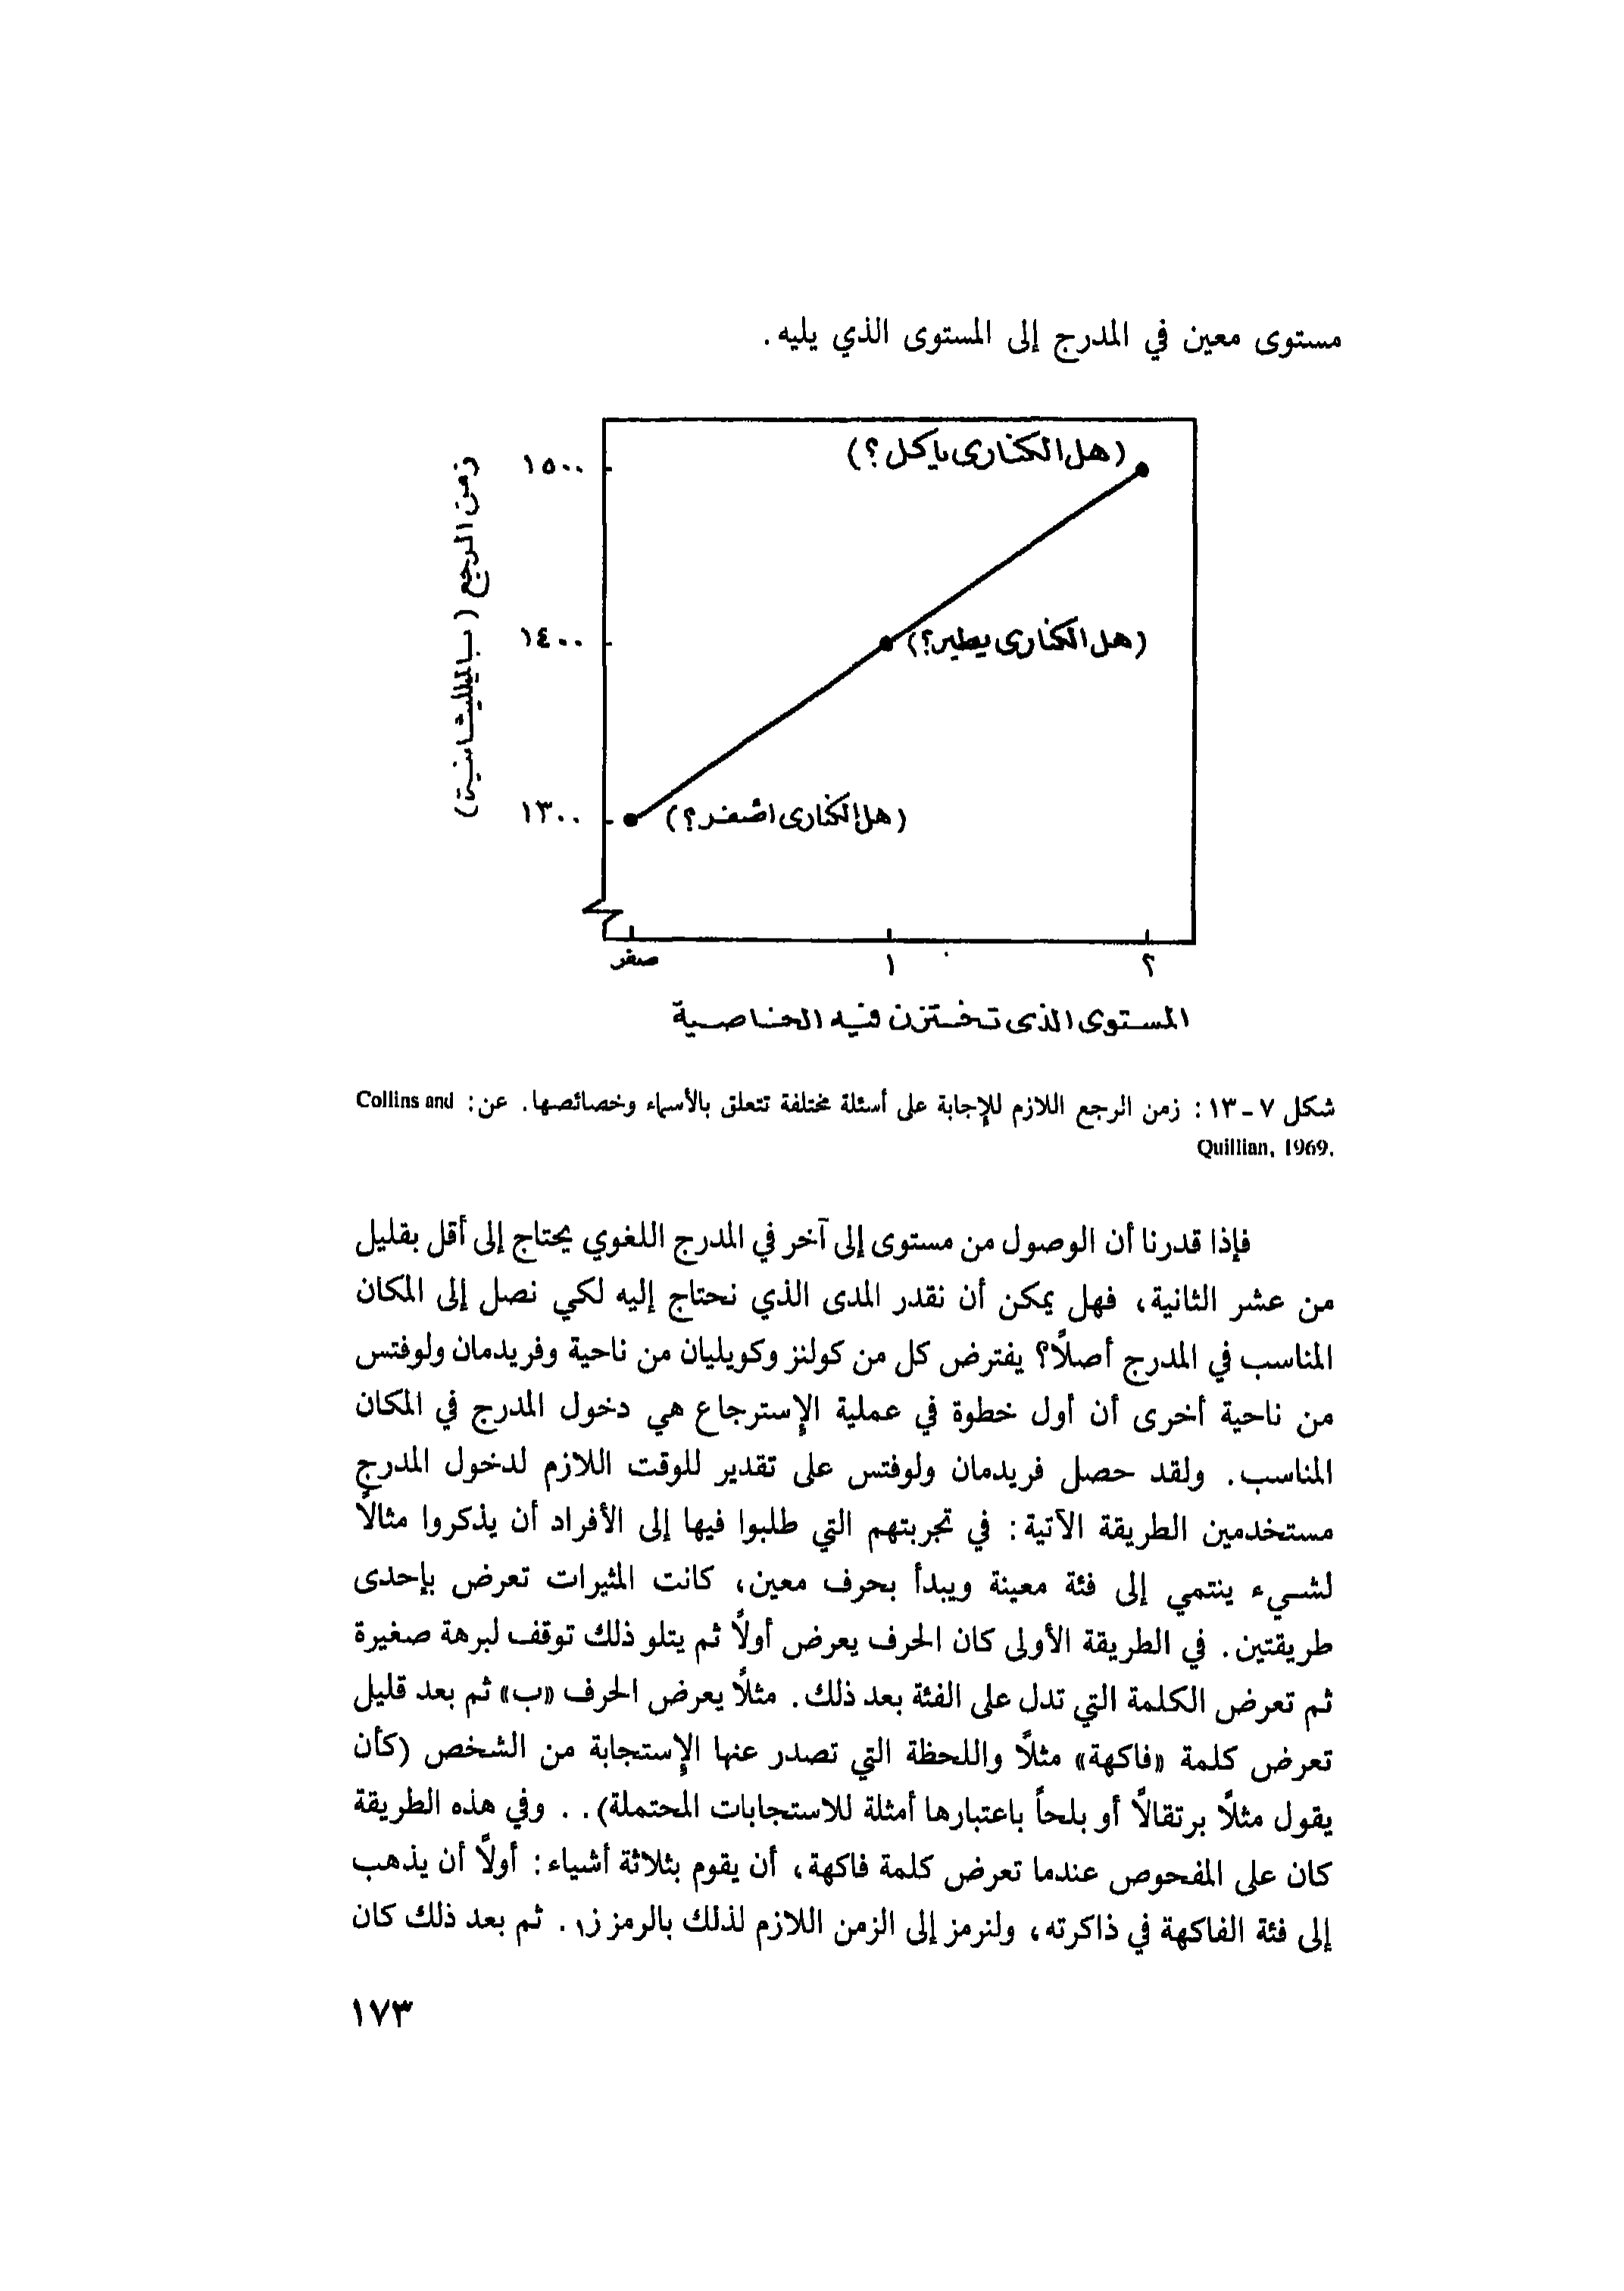 مستوى معين في المدرج إلى المستوى الذي يليه.
(هل الكنارى يأكل؟)
١٥٠٠
زمن الرجع (بالميلليثانية)
(هل الكنارى يطير؟)
١٤٠٠
(هل الكنارى اصفر؟)
١٣٠٠
صفر ١ ٢
المستوى الذى تختزن فيه الخاصية
شكل ٧ - ١٣: زمن الرجع اللازم للإجابة على أسئلة مختلفة تتعلق بالأسماء وخصائصها. عن: Collins and
Quillian, 1969.
فإذا قدرنا أن الوصول من مستوى إلى آخر في المدرج اللغوي يحتاج إلى أقل بقليل
من عشر الثانية، فهل يمكن أن نقدر المدى الذي نحتاج إليه لكي نصل إلى المكان
المناسب في المدرج أصلاً؟ يفترض كل من كولنز وكويليان من ناحية وفريدمان ولوفتس
من ناحية أخرى أن أول خطوة في عملية الإسترجاع هي دخول المدرج في المكان
المناسب. ولقد حصل فريدمان ولوفتس على تقدير للوقت اللازم لدخول المدرج
مستخدمين الطريقة الآتية: في تجربتهم التي طلبوا فيها إلى الأفراد أن يذكروا مثالاً
لشيء ينتمي إلى فئة معينة ويبدأ بحرف معين، كانت المثيرات تعرض بإحدى
طريقتين. في الطريقة الأولى كان الحرف يعرض أولاً ثم يتلو ذلك توقف لبرهة صغيرة
ثم تعرض الكلمة التي تدل على الفئة بعد ذلك. مثلاً يعرض الحرف «ب» ثم بعد قليل
تعرض كلمة «فاكهة» مثلاً واللحظة التي تصدر عنها الإستجابة من الشخص (كأن
يقول مثلاً برتقالاً أو بلحاً باعتبارها أمثلة للاستجابات المحتملة). . وفي هذه الطريقة
كان على المفحوص عندما تعرض كلمة فاكهة، أن يقوم بثلاثة أشياء: أولاً أن يذهب
إلى فئة الفاكهة في ذاكرته، ولنرمز إلى الزمن اللازم لذلك بالرمز ز١. ثم بعد ذلك كان
١٧٣